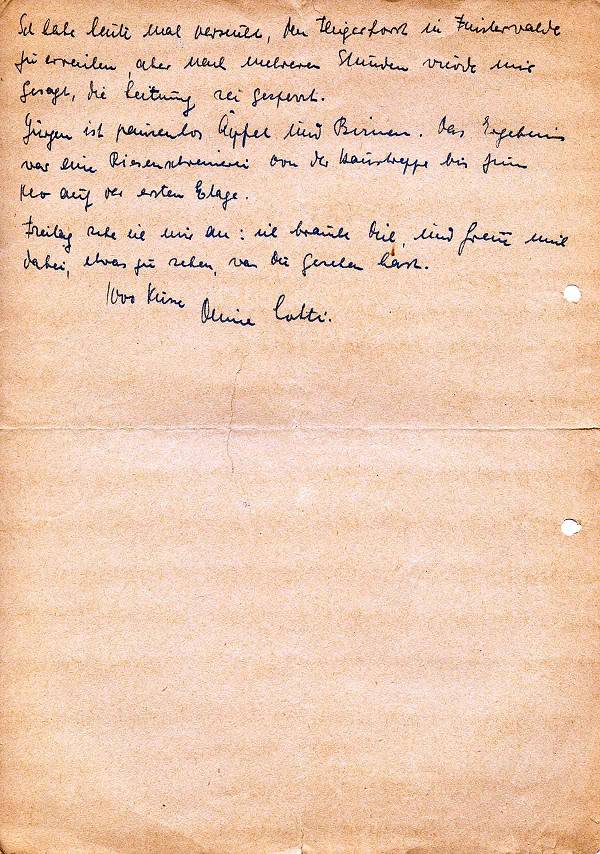 Ich habe heute mal versucht, den Fliegerhorst in Finsterwalde
zu erreichen, aber nach mehreren Stunden wurde mir
gesagt, die Leitung sei gesperrt.
Jürgen ist pausenlos Äpfel und Birnen. Das Ergebnis
war eine Riesenschweinerei von der Haustreppe bis zum
Klo auf der ersten Etage.
Freitag sehe ich mir an: ich brauche Dich, und freue mich
dabei, etwas zu sehen, was Du gesehen hast.
1000 Küsse
Deine Lotti.